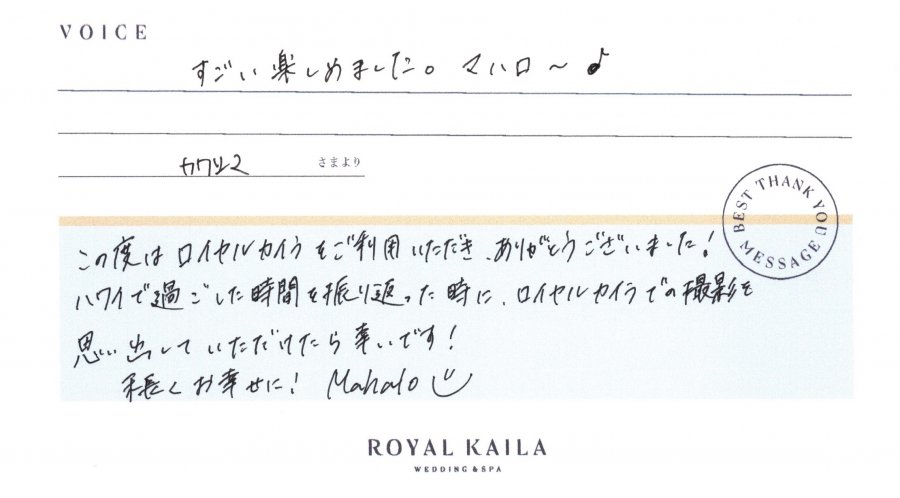 VOICE
すごい楽しめました。マハロ～♪
カワシマ さまより
BEST THANK YOU MESSAGE
この度はロイヤルカイラをご利用いただき、ありがとうございました！
ハワイで過ごした時間を振り返った時に、ロイヤルカイラでの撮影を
思い出していただけたら幸いです！
末長くお幸せに！ Mahalo
ROYAL KAILA
WEDDING & SPA